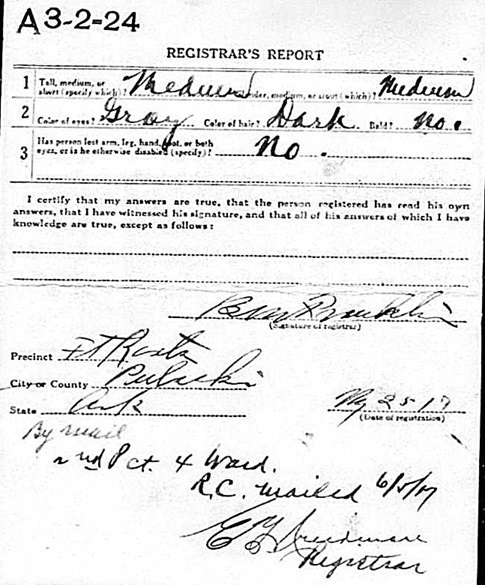 A3-2-24
REGISTRAR'S REPORT
1 Tall, medium, or short (specify which)? Medium Slender, medium, or stout (which)? Medium
2 Color of eyes? Gray Color of hair? Dark Bald? No.
3 Has person lost arm, leg, hand, foot, or both eyes, or is he otherwise disabled (specify)? No.
I certify that my answers are true, that the person registered has read his own
answers, that I have witnessed his signature, and that all of his answers of which I have
knowledge are true, except as follows:
Franklin
(Signature of registrar)
Precinct Ft Roots
City or County Pulaski
State Ark
My 25 17
(Date of registration)
By mail
2nd Pct. 4 Ward.
R.C. Mailed 6/5/17
Registrar